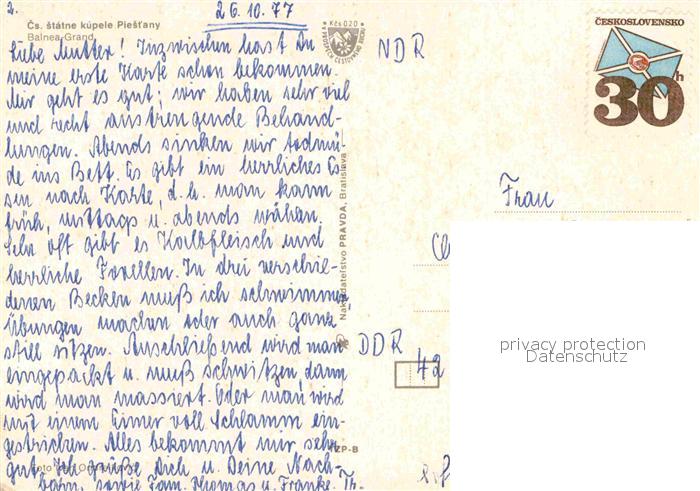 2.
26.10.77
Čs. štátne kúpele Piešťany
Balnea-Grand
Kčs 020
Liebe Mutter! Inzwischen hast Du
meine erste Karte schon bekommen.
Mir geht es gut; wir haben sehr viel
und recht anstrengende Behand-
lungen. Abends sinken wir todmü-
de ins Bett. Es gibt ein herrliches Es-
sen nach Karte, d.h. man kann
früh, mittags u. abends wählen.
Sehr oft gibt es Kalbfleisch und
herrliche Forellen. In drei verschie-
denen Becken muß ich schwimmen,
Übungen machen oder auch ganz
still sitzen. Anschließend wird man
eingepackt u. muß schwitzen, dann
wird man massiert. Oder man wird
mit einem Eimer voll Schlamm ein-
gestrichen. Alles bekommt mir sehr
gut. Ich grüße Dich u. Deine Nach-
barn, sowie Fam. Thomas u. Franke. Th-
Foto
VZP-B
Nakladateľstvo PRAVDA, Bratislava
NDR
ČESKOSLOVENSKO
30h
Frau
DDR
42
privacy protection
Datenschutz